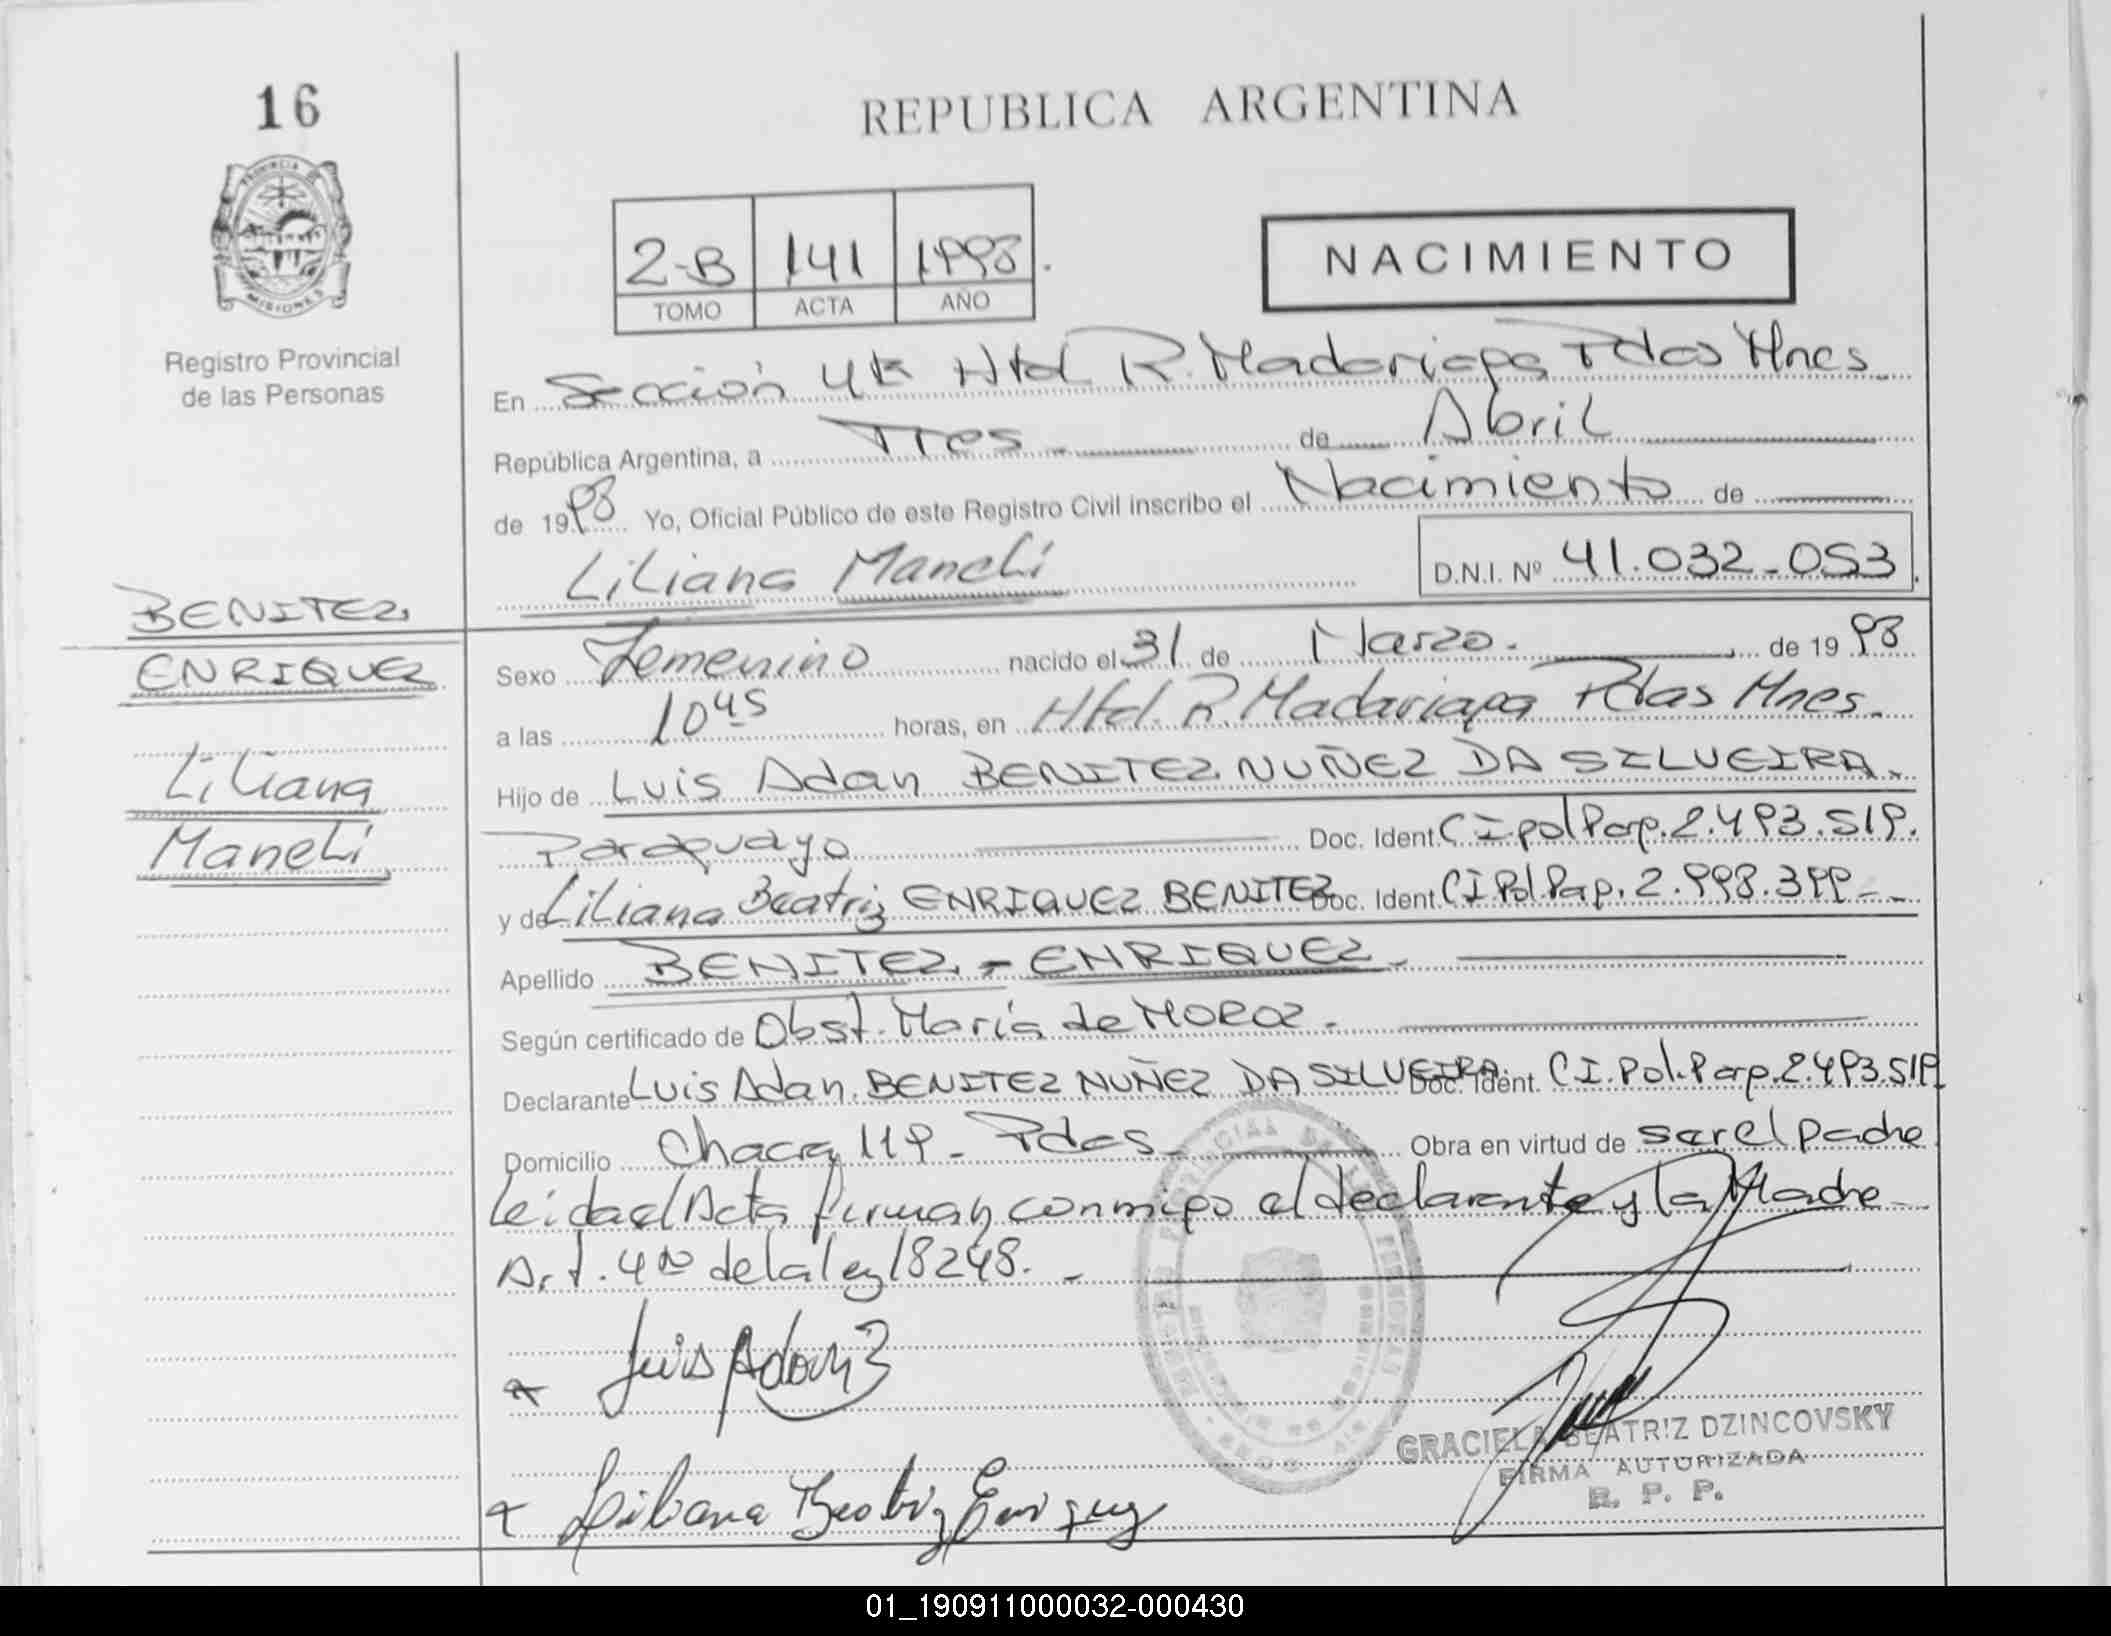 16
REPUBLICA ARGENTINA
PROVINCIA DE
MISIONES
2-B 141 1998.
TOMO ACTA AÑO
NACIMIENTO
Registro Provincial
de las Personas
En Sección 4ta Htal R. Madariaga Pdas Mnes
República Argentina, a Tres de Abril
de 1998 Yo, Oficial Público de este Registro Civil inscribo el Nacimiento de
Liliana Maneli D.N.I. Nº 41.032-053
BENITEZ
ENRIQUEZ
Liliana
Maneli
Sexo Femenino nacido el 31 de Marzo. de 1998
a las 10 45 horas, en Htal. R. Madariaga Pdas Mnes.
Hijo de Luis Adan BENITEZ NUÑEZ DA SILVEIRA.
Paraguayo Doc. Ident. CI pol Parg. 2.493.519.
y de Liliana Beatriz ENRIQUEZ BENITEZ Doc. Ident. CI Pol. Pag. 2.998.399-
Apellido BENITEZ - ENRIQUEZ.
Según certificado de Obst. María de MOROZ.
Declarante Luis Adan. BENITEZ NUÑEZ DA SILVEIRA Doc. Ident. CI. Pol. Parg. 2.493.519
Domicilio Chacra 119 - Pdas Obra en virtud de ser el padre
Leida el Acta firman conmigo el declarante y la Madre
Art. 4to de la ley 18248. -
Luis Adan B
Liliana Beatriz Enriquez
GRACIELA BEATRIZ DZINCOVSKY
FIRMA AUTORIZADA
R. P. P.
01_190911000032-000430